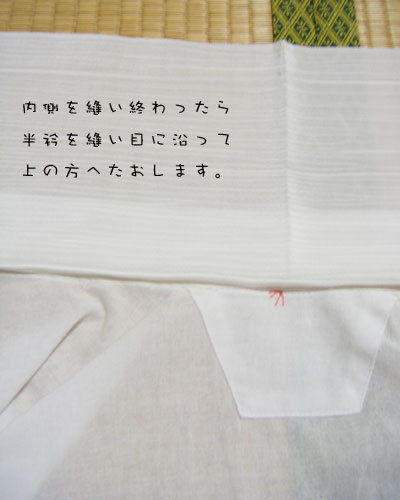 内側を縫い終わったら
半衿を縫い目に沿って
上の方へたおします。